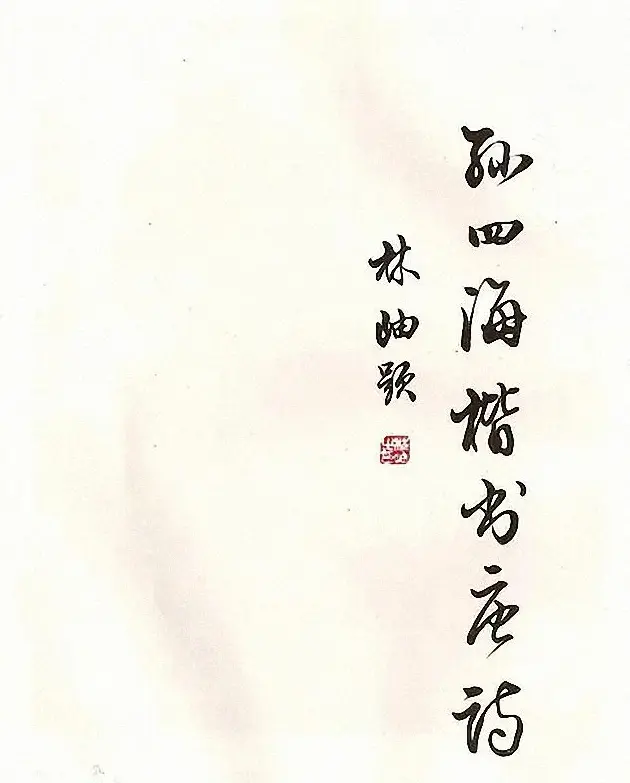 孙四海楷书唐诗
林岫题